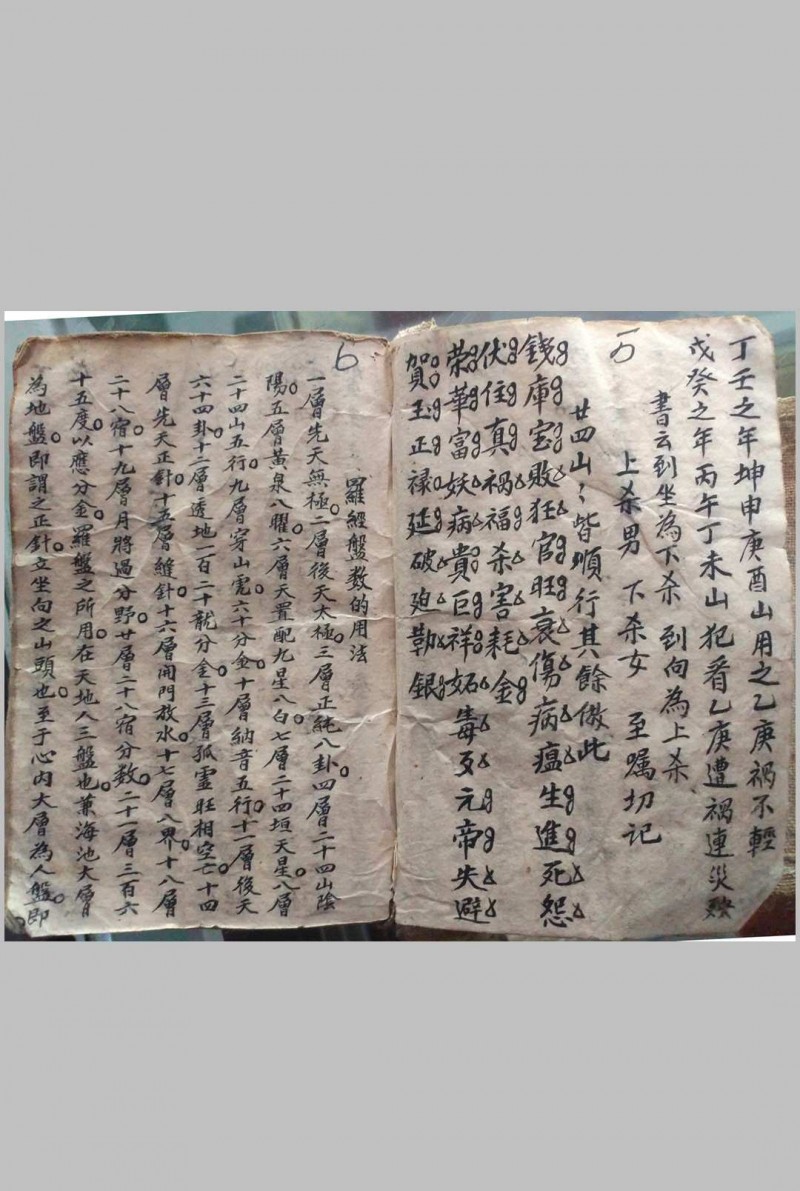 丁壬之年坤申庚酉山用之乙庚祸不輕
戊癸之年丙午丁未山犯着乙庚遭禍連災殃
書云到坐為下杀 到向為上杀
上杀男 下杀女 至嘱切记
5
廿四山〻皆順行其餘倣此
錢庫宝敗狂官旺衰傷病瘟生進死怨
伏住真禍福杀害耗金
荣華富妖病貴巨祥妬毒歹元帝失避
賀玉正禄延破廹勅銀
6
羅經盤数的用法
一層先天無極。二層後天太極。三層正純八卦。四層二十四山陰
陽。五層黃泉八曜。六層天罡配九星八白。七層二十四垣天星。八層
二十四山五行。九層穿山宪六十分金。十層納音五行。十一層後天
六十四卦。十二層透地一百二十龍分金。十三層孤霊旺相空亡。十四
層先天正針。十五層縫針。十六層開門放水。十七層八界。十八層
二十八宿。十九層月將過分野。廿層二十八宿分数。二十一層三百六
十五度。以應分金。羅盤之所用。在天地人三盤也。兼海池大層
為地盤。即謂之正針。立坐向之山頭也。至于心内大層為人盤。即